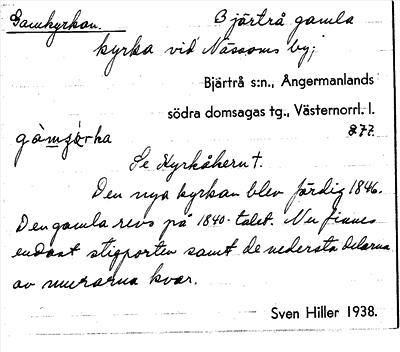 Gamkyrkan. Bjärtrå gamla
kyrka vid Nässoms by;
Bjärtrå s:n., Ångermanlands
södra domsagas tg., Västernorrl. l.
877.
Se Kyrkåkern †.
Den nya kyrkan blev färdig 1846.
Den gamla revs på 1840-talet. Nu finnes
endast stigporten samt de nedersta delarna
av murarna kvar.
Sven Hiller 1938.